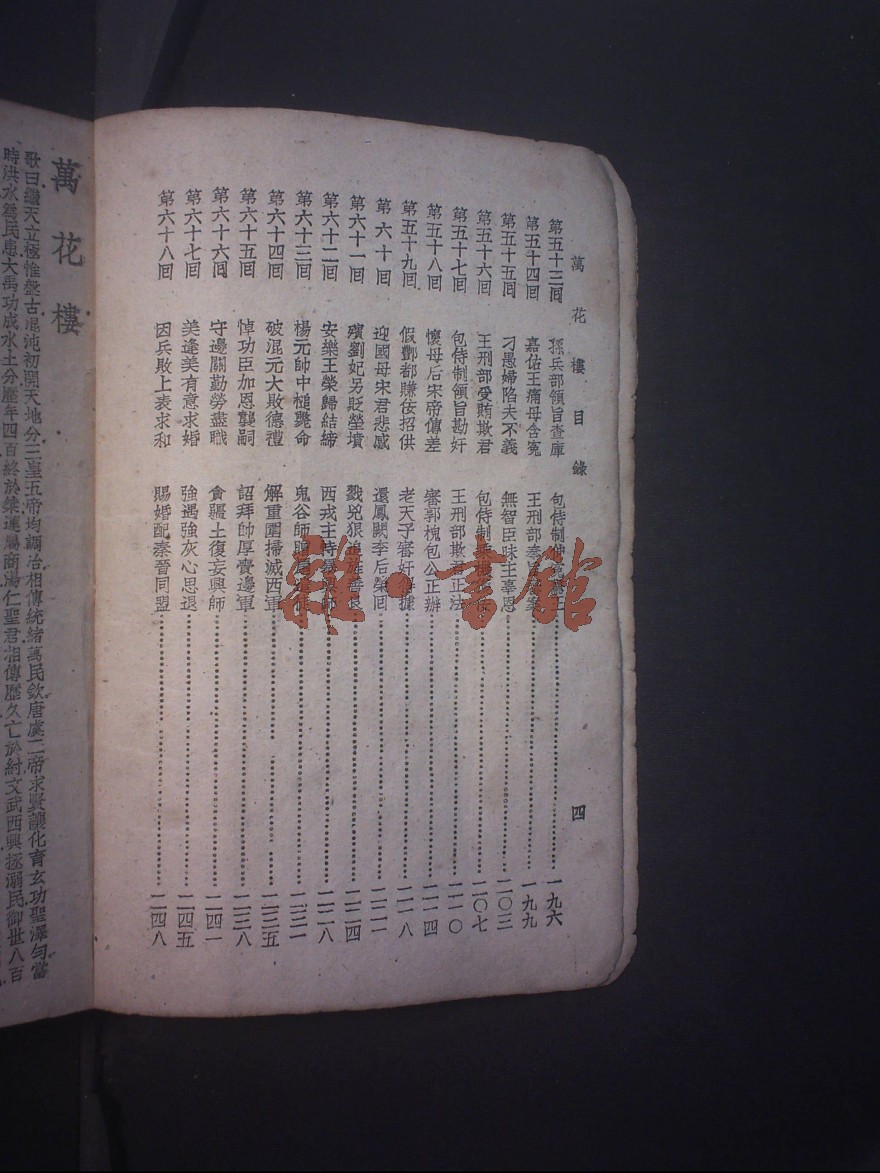 萬花樓目錄 四
第五十三回 孫兵部領旨查庫 包待制
第五十四回 嘉佑王痛母含冤 王刑部奉旨
第五十五回 刁愚婦陷夫不義 無智臣昧主辜恩 二〇三
第五十六回 王刑部受賄欺君 包待制 二〇七
第五十七回 包待制領旨勘奸 王刑部欺君正法 二一〇
第五十八回 懷母后宋帝傳差 審郭槐包公正辦 二一四
第五十九回 假酆都賺佞招供 老天子審奸得據 二一八
第六十回 迎國母宋君悲感 還鳳闕李后榮回 二二一
第六十一回 殯劉妃另貶塋墳 戮兇狠追 二二四
第六十二回 安樂王榮歸結締 西戎主恃 二二八
第六十三回 楊元帥中槌斃命 鬼谷師 二三一
第六十四回 破混元大敗德禮 解重圍掃滅西軍 二三五
第六十五回 悼功臣加恩襲嗣 詔拜帥厚賚邊軍 二三八
第六十六回 守邊關勤勞盡職 貪疆土復妄興師 二四一
第六十七回 美逢美有意求婚 強遇強灰心思退 二四五
第六十八回 因兵敗上表求和 賜婚配秦晉同盟 二四八
一九六
一九九
雜·書館
萬花樓
歌曰繼天立極惟盤古混沌初開天地分三皇五帝均調治相傳統緒萬民欽唐虞二帝求賢讓化育玄功聖澤勻當
時洪水為民患大禹功成水土分歷年四百終於桀運賜商湯仁聖君相傳歷久亡於紂文武西興拯溺民御世八百